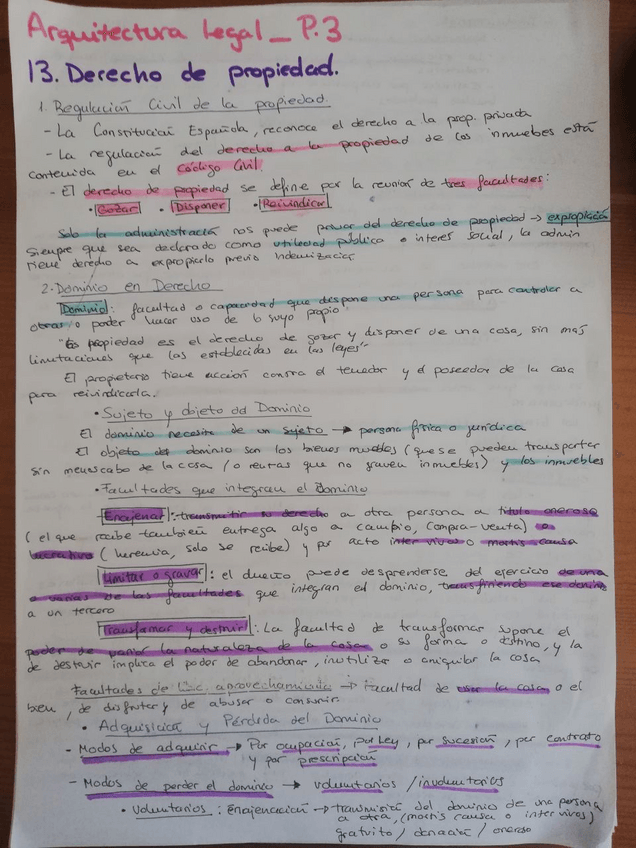 Arquitectura Legal_ P.3
13. Derecho de propiedad.
1. Regulación Civil de la propiedad.
- La Constitución Española, reconoce el derecho a la prop. privada
- La regulación del derecho a la propiedad de los inmuebes está
contenida en el Código Civil.
- El derecho de propiedad se define por la reunión de tres facultades:
• Gozar • Disponer • Reivindicar
Solo la administració nos puede privar del derecho de propiedad → expropiación
siempre que sea declarado como utilidad pública o interes social, la admin
tiene derecho a expropiarlo previo indemnización
2. Dominio en Derecho
Dominio: facultad o capacidad que dispone una persona para controlar a
otras o poder hacer uso de lo suyo propio
"La propiedad es el derecho de gozar y disponer de una cosa, sin más
limitaciones que las establecidas en las leyes"
El propietario tiene acción contra el tenedor y el poseedor de la cosa
para reivindicarla.
• Sujeto y objeto del Dominio
El dominio necesita de un sujeto → persona física o jurídica
El objeto del dominio son los bienes muebles (que se pueden transportar
sin menoscabo de la cosa / o rentas que no graven inmuebles) y los inmuebles
• Facultades que integran el Dominio
Enajenar: transmitir su derecho a otra persona a título oneroso
(el que recibe también entrega algo a cambio, compra-venta) o
lucrativo (herencia, solo se recibe) y por acto inter vivos o mortis causa
Limitar o gravar: el dueño puede desprenderse del ejercicio de una
o varias de las facultades que integran el dominio, transfiriendo ese dominio
a un tercero
Transformar y destruir: La facultad de transformar supone el
poder de variar la naturaleza de la cosa o su forma o destino, y la
de destruir implica el poder de abandonar, inutilizar o aniquilar la cosa
Facultades de aprovechamiento → Facultad de usar la cosa o el
bien, de disfrutar y de abusar o consumir.
• Adquisición y Pérdida del Dominio
- Modos de adquirir → Por ocupación, por Ley, por sucesión, por contrato
y por prescripción
- Modos de perder el dominio → voluntarios / involuntarios
• Voluntarios: Enajenación → transmisión del dominio de una persona
a otra, (mortis causa o inter vivos)
gratuito / donación / oneroso